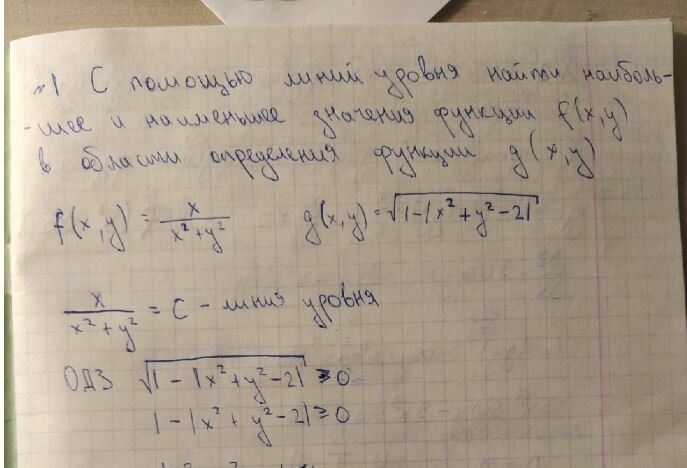 №1 С помощью линий уровня найти наиболь-
-шее и наименьшее значения функции f(x,y)
в области определения функции g(x,y)
f(x,y) = x/(x²+y²) g(x,y) = √(1-|x²+y²-2|)
x/(x²+y²) = C - линия уровня
ОДЗ √(1-|x²+y²-2|) ≥ 0
1-|x²+y²-2| ≥ 0